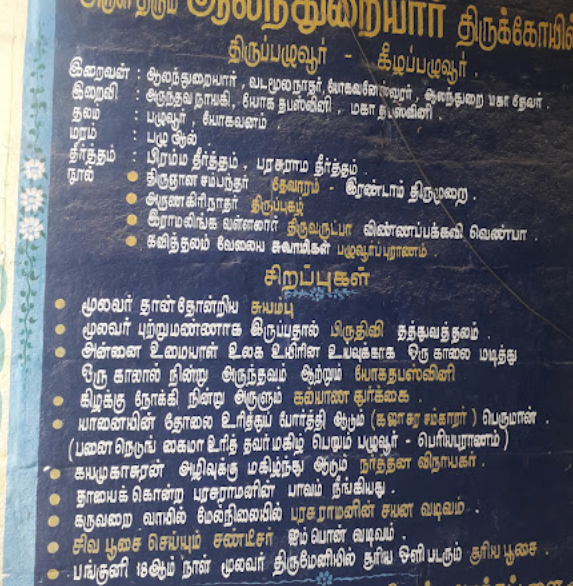 அருள் தரும் ஆலந்துறையார் திருக்கோயில்
திருப்பழுவூர் - கீழப்பழுவூர் .
இறைவன் : ஆலந்துறையார் , வடமூலநாதர் , யோகவனேஸ்வரர் , ஆலந்துறை மகா தேவர் .
இறைவி : அருந்தவ நாயகி , யோக தபஸ்வினி , மகா தபஸ்வினி .
தலம் : பழுவூர் , யோகவனம் .
மரம் : பழு ஆல்
தீர்த்தம் : பிரம்ம தீர்த்தம் , பரசுராம தீர்த்தம்
நூல் ● திருஞான சம்பந்தர் தேவாரம் - இரண்டாம் திருமுறை .
● அருணகிரிநாதர் திருப்புகழ்
● இராமலிங்க வள்ளலார் திருவருட்பா விண்ணப்பக்கலி வெண்பா .
● கவித்தலம் வேலைய சுவாமிகள் பழுவூர்ப்புராணம் .
சிறப்புகள்
● மூலவர் தான் தோன்றிய சுயம்பு
● மூலவர் புற்றுமண்ணாக இருப்பதால் பிருதிவி தத்துவத்தலம் .
● அன்னை உமையாள் உலக உயிரின உயவுக்காக ஒரு காலை மடித்து
ஒரு காலால் நின்று அருந்தவம் ஆற்றும் யோகதபஸ்வினி
● கிழக்கு நோக்கி நின்று அருளும் கல்யாண துர்க்கை .
● யானையின் தோலை உரித்துப் போர்த்தி ஆடும் ( கஜாசுர சம்காரர் ) பெருமான் .
( பனை நெடுங் கைமா உரித் தவர் மகிழ் பெரும் பழுவூர் - பெரியபுராணம் )
● கயமுகாசுரன் அழிவுக்கு மகிழ்ந்து ஆடும் நர்த்தன விநாயகர் .
● தாயைக் கொன்ற பரசுராமனின் பாவம் நீங்கியது .
● கருவறை வாயில் மேல்நிலையில் பரசுராமனின் சயன வடிவம் .
● சிவ பூசை செய்யும் சண்டீசர் ஐம்பொன் வடிவம் .
● பங்குனி 18ஆம் நாள் மூலவர் திருமேனியில் சூரிய ஒளி படரும் சூரிய பூசை .